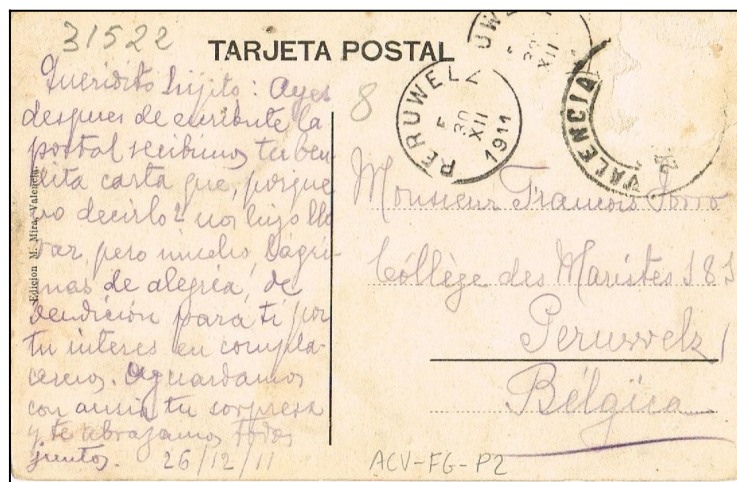 31522
TARJETA POSTAL
Queridito hijito: Ayer
despues de escribirte la
postal recibimos tu ben-
dita carta que, porque
no decirlo? nos hizo llo-
rar, pero mucho, lágri-
mas de alegria, de
bendición para ti por
tu interes en compla-
cernos. Aguardamos
con ansia tu sorpresa
y te abrazamos todos
juntos. 26/12/11
Edicion M. Mira-Valencia.
8
PERUWELZ
30
XII
1911
30
XII
VALENCIA
Monsieur Francois
Collège des Maristes
Peruwelz
Bélgica
ACV-FG-P2